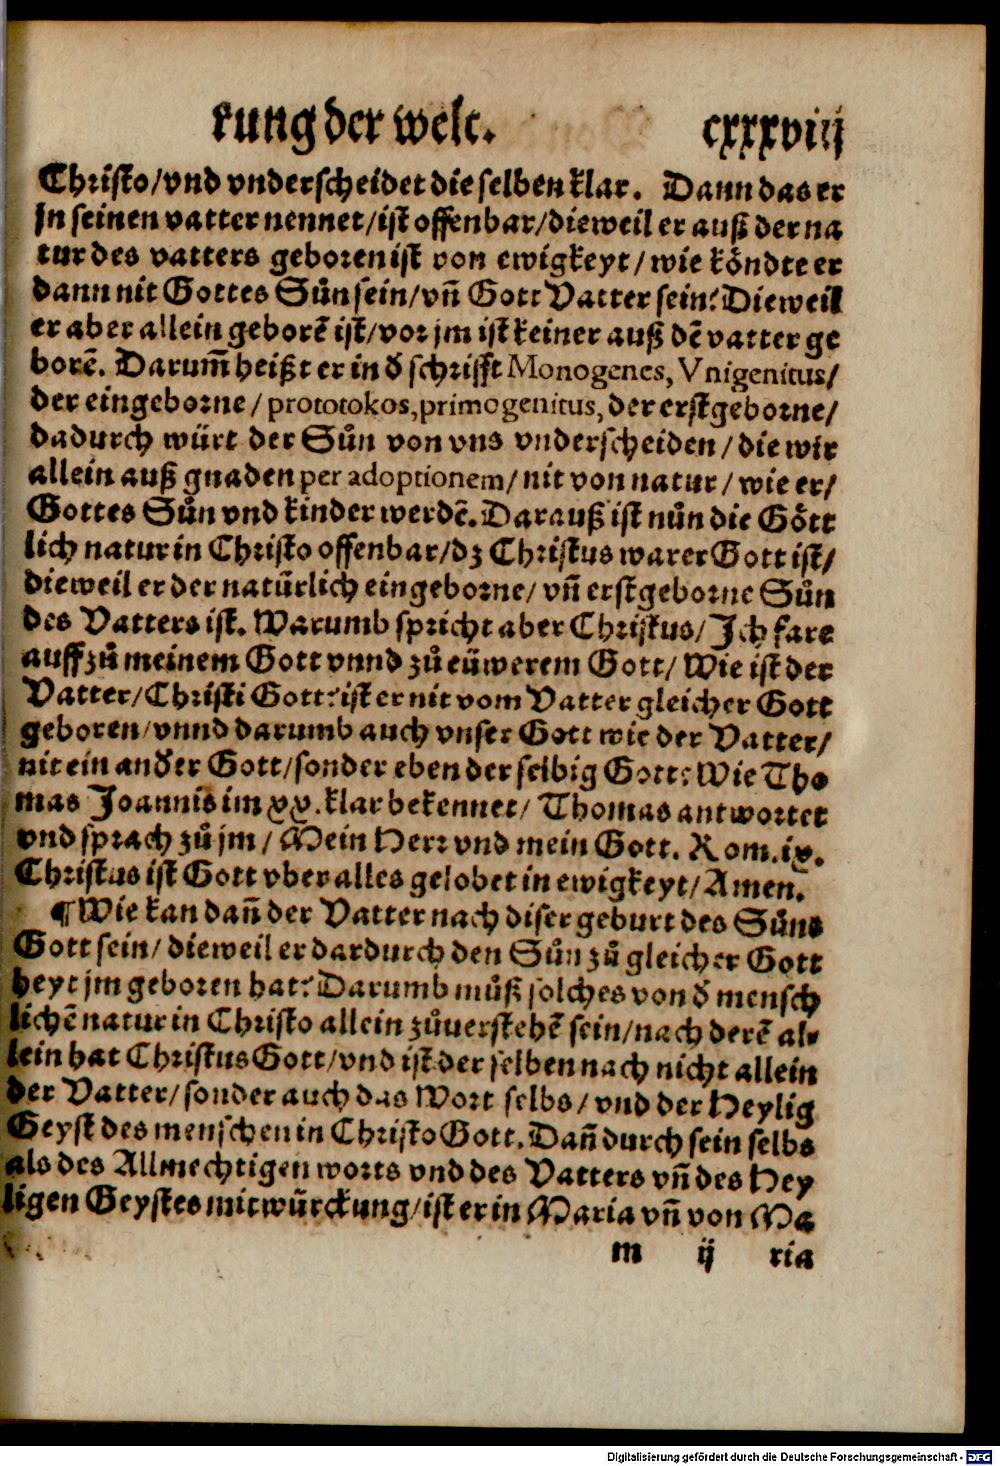 kung der welt. cxxxviij
Christo/vnd vnderscheidet die selben klar. Dann das er
jn seinen vatter nennet/ist offenbar/dieweil er auß der na
tur des vatters geboren ist von ewigkeyt/wie köndte er
dann nit Gottes Sůn sein/vñ Gott Vatter sein? Dieweil
er aber allein geborẽ ist/vor jm ist keiner auß dẽ vatter ge
borẽ. Darum̃ heißt er in d̕ schrifft Monogenes, Vnigenitus/
der eingeborne/prototokos,primogenitus, der erstgeborne/
dadurch würt der Sůn von vns vnderscheiden/die wir
allein auß gnaden per adoptionem/nit von natur/wie er/
Gottes Sůn vnd kinder werdẽ. Darauß ist nůn die Gött
lich natur in Christo offenbar/dz Christus warer Gott ist/
dieweil er der natürlich eingeborne/vñ erstgeborne Sůn
des Vatters ist. Warumb spricht aber Christus/Ich fare
auff zů meinem Gott vnnd zů eüwerem Gott/Wie ist der
Vatter/Christi Gott? ist er nit vom Vatter gleicher Gott
geboren/vnnd darumb auch vnser Gott wie der Vatter/
nit ein and̕er Gott/sonder eben der selbig Gott? Wie Tho
mas Joannis im xx. klar bekennet/Thomas antwortet
vnd sprach zů jm/Mein Herr vnd mein Gott. Rom.ix.
Christus ist Gott vber alles gelobet in ewigkeyt/Amen.
¶Wie kan dañ der Vatter nach diser geburt des Sůns
Gott sein/dieweil er dardurch den Sůn zů gleicher Gott
heyt jm geboren hat? Darumb můß solches von d̕ mensch
lichẽ natur in Christo allein zůuerstehẽ sein/nach derẽ al-
lein hat Christus Gott/vnd ist der selben nach nicht allein
der Vatter/sonder auch das Wort selbs/vnd der Heylig
Geyst des menschen in Christo Gott. Dañ durch sein selbs
als des Allmechtigen worts vnd des Vatters vñ des Hey
ligen Geystes mitwürckung/ist er in Maria vñ von Ma
m ij ria
Digitalisierung gefördert durch die Deutsche Forschungsgemeinschaft - DFG